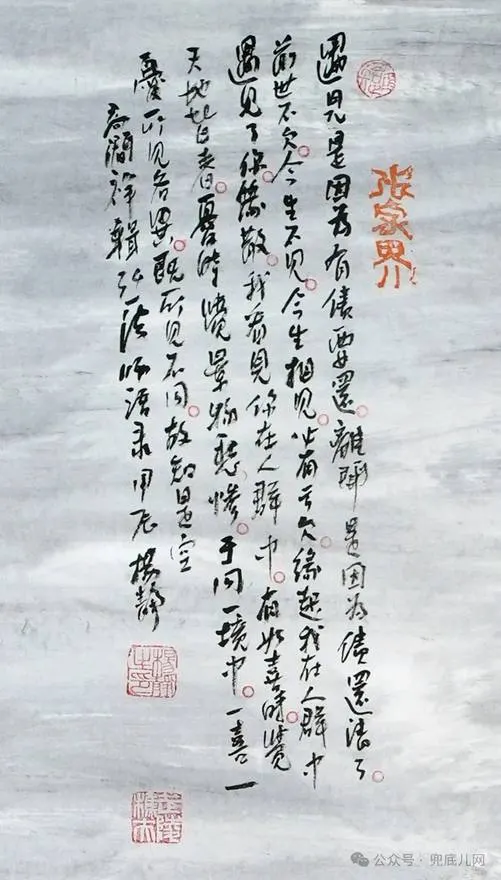 张家界
遇见是因为有债要还。离开是因为债还清了。
前世不欠。今生不见。今生相见。必有亏欠。缘起我在人群中
遇见了你。缘散。我看见你在人群中。有如喜时。觉
天地皆春。忧时。觉景物愁惨。于同一境中。一喜一
忧所见各异。既所见不同故知是空
辑弘一法师语录甲辰杨静
杨静
公众号·兜底儿网